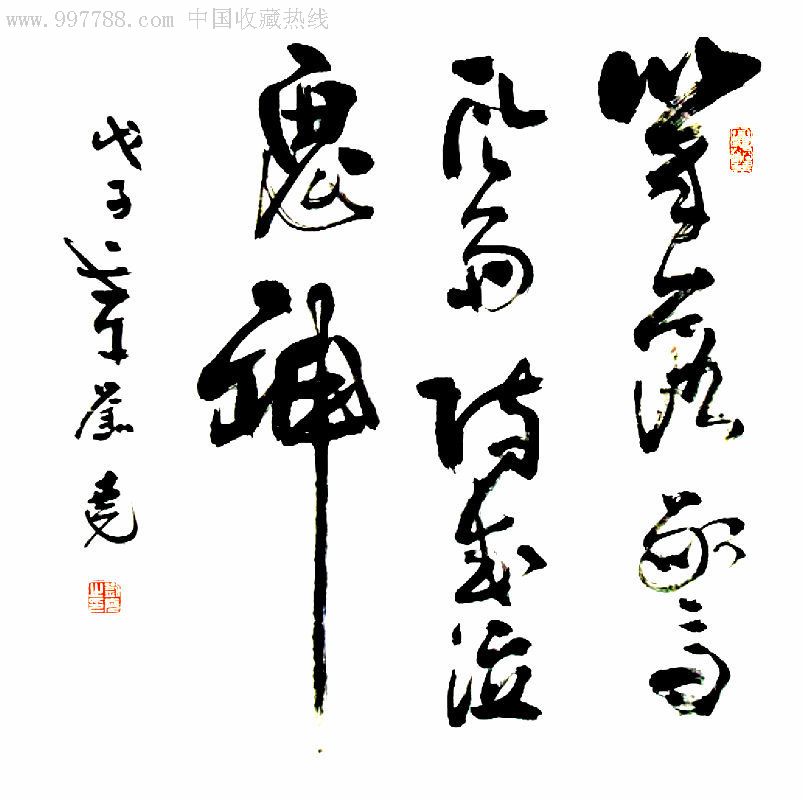 www.997788.com 中国收藏热线
筆落驚
風雨詩成泣
鬼神
戊子年